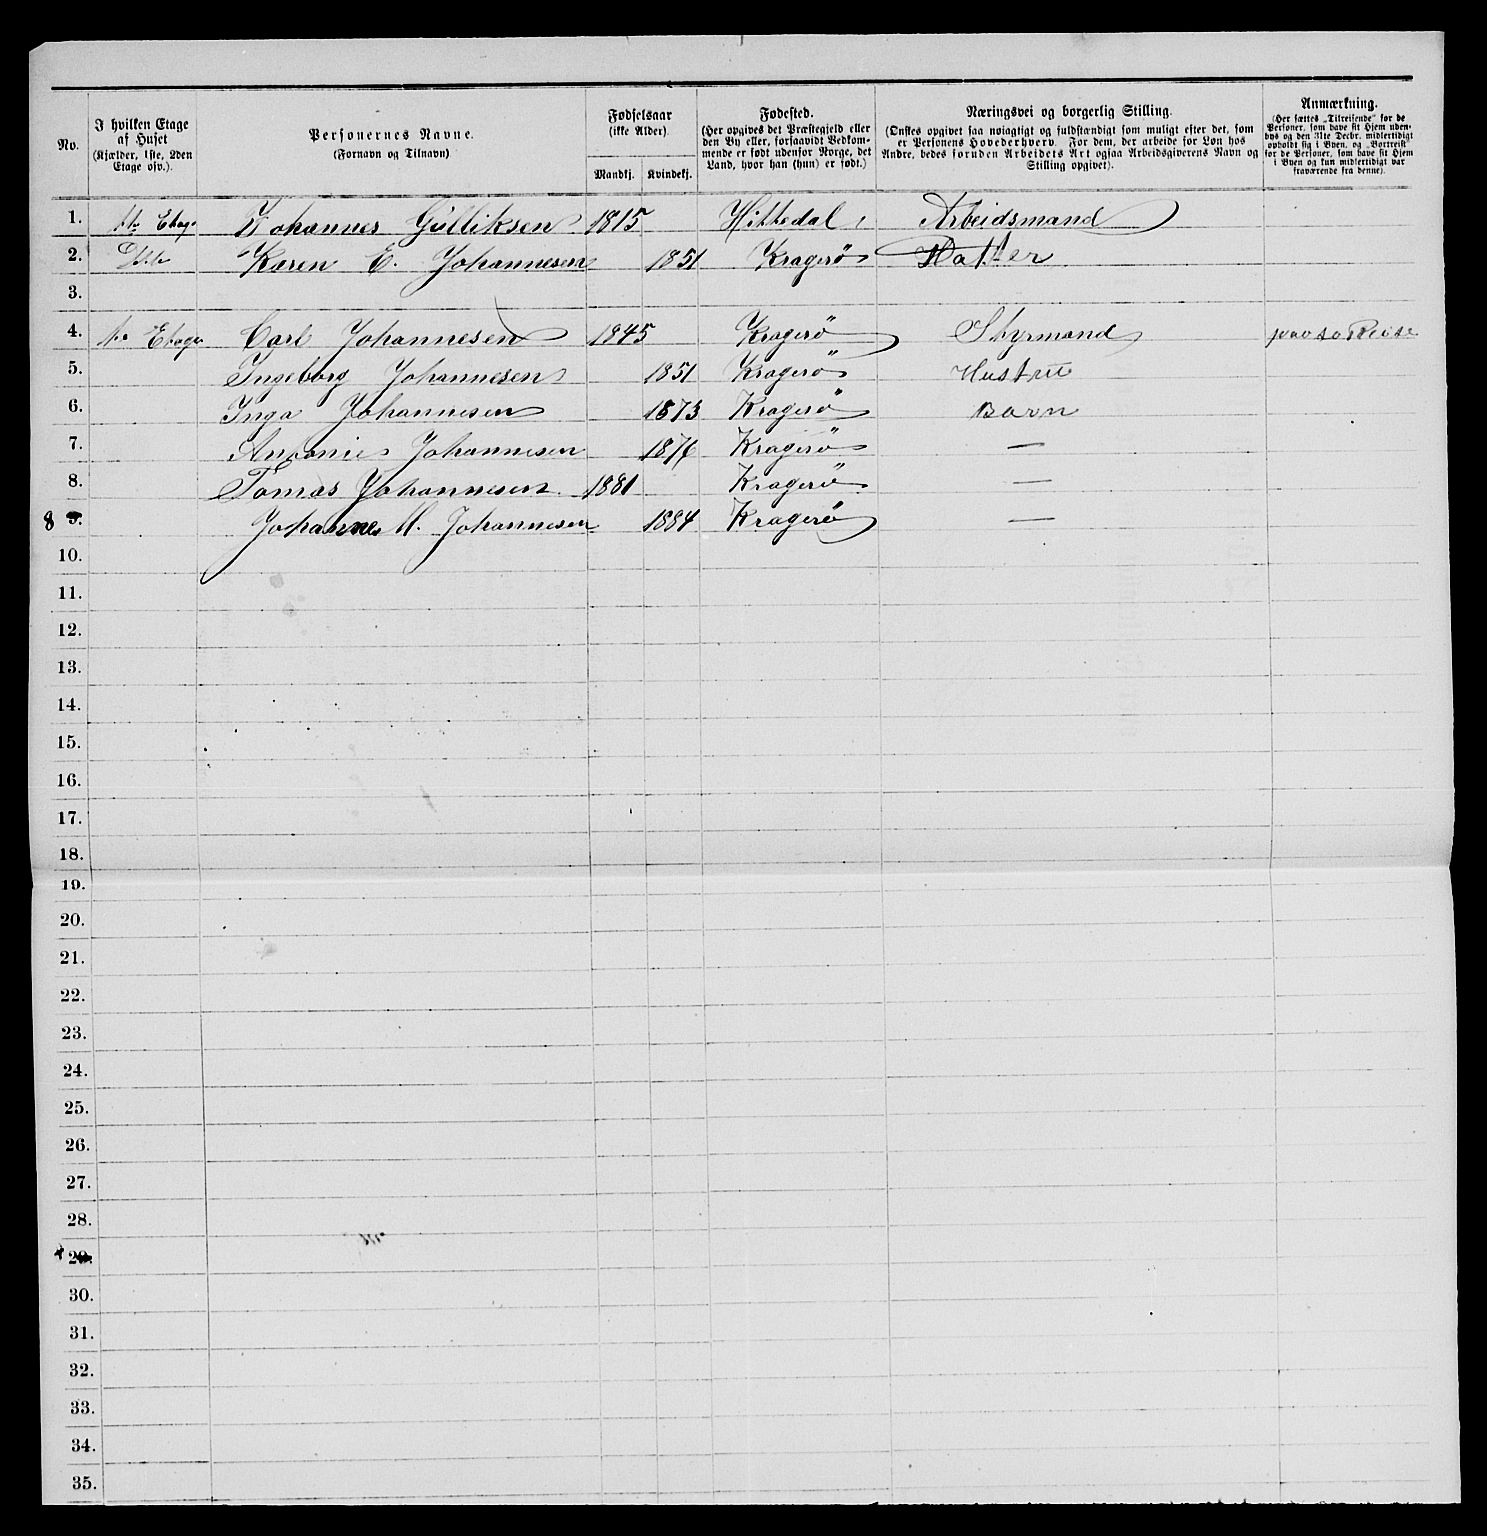 No.
I hvilken Etage af Huset (Kjælder, 1ste, 2den Etage osv.).
Personernes Navne. (Fornavn og Tilnavn)
Fødselsaar (ikke Alder).
Mandkj. Kvindekj.
Fødested. (Her opgives det Præstegjeld eller den By eller, forsaavidt Vedkommende er født udenfor Norge, det Land, hvor han (hun) er født.)
Næringsvei og borgerlig Stilling. (Ønskes opgivet saa nøiagtigt og fuldstændigt som muligt efter det, som er Personens Hovederhverv. For dem, der arbeide for Løn hos Andre, bedes foruden Arbeidets Art ogsaa Arbeidsgiverens Navn og Stilling opgivet).
Anmærkning. (Her sættes „Tilreisende“ for de Personer, som have sit Hjem udenbys og den 31te Decbr. midlertidigt opholdt sig i Byen, og „Bortreist“ for de Personer, som have sit Hjem i Byen og kun midlertidigt var fraværende fra denne).
1. 1ste Etage Johannes Gulliksen 1815 Hittedal Arbeidsmand
2. Ditto Karen E. Johannesen 1851 Kragerö Datter
3.
4. 1ste Etage Carl Johannesen 1845 Kragerö Styrmand paa sø Reise
5. Ingeborg Johannesen 1851 Kragerö Hustru
6. Inga Johannesen 1873 Kragerö Barn
7. Antonie Johannesen 1876 Kragerö —
8. Tomas Johannesen 1881 Kragerö —
8 9. Johanne M. Johannesen 1884 Kragerö —
10.
11.
12.
13.
14.
15.
16.
17.
18.
19.
20.
21.
22.
23.
24.
25.
26.
27.
28.
29.
30.
31.
32.
33.
34.
35.